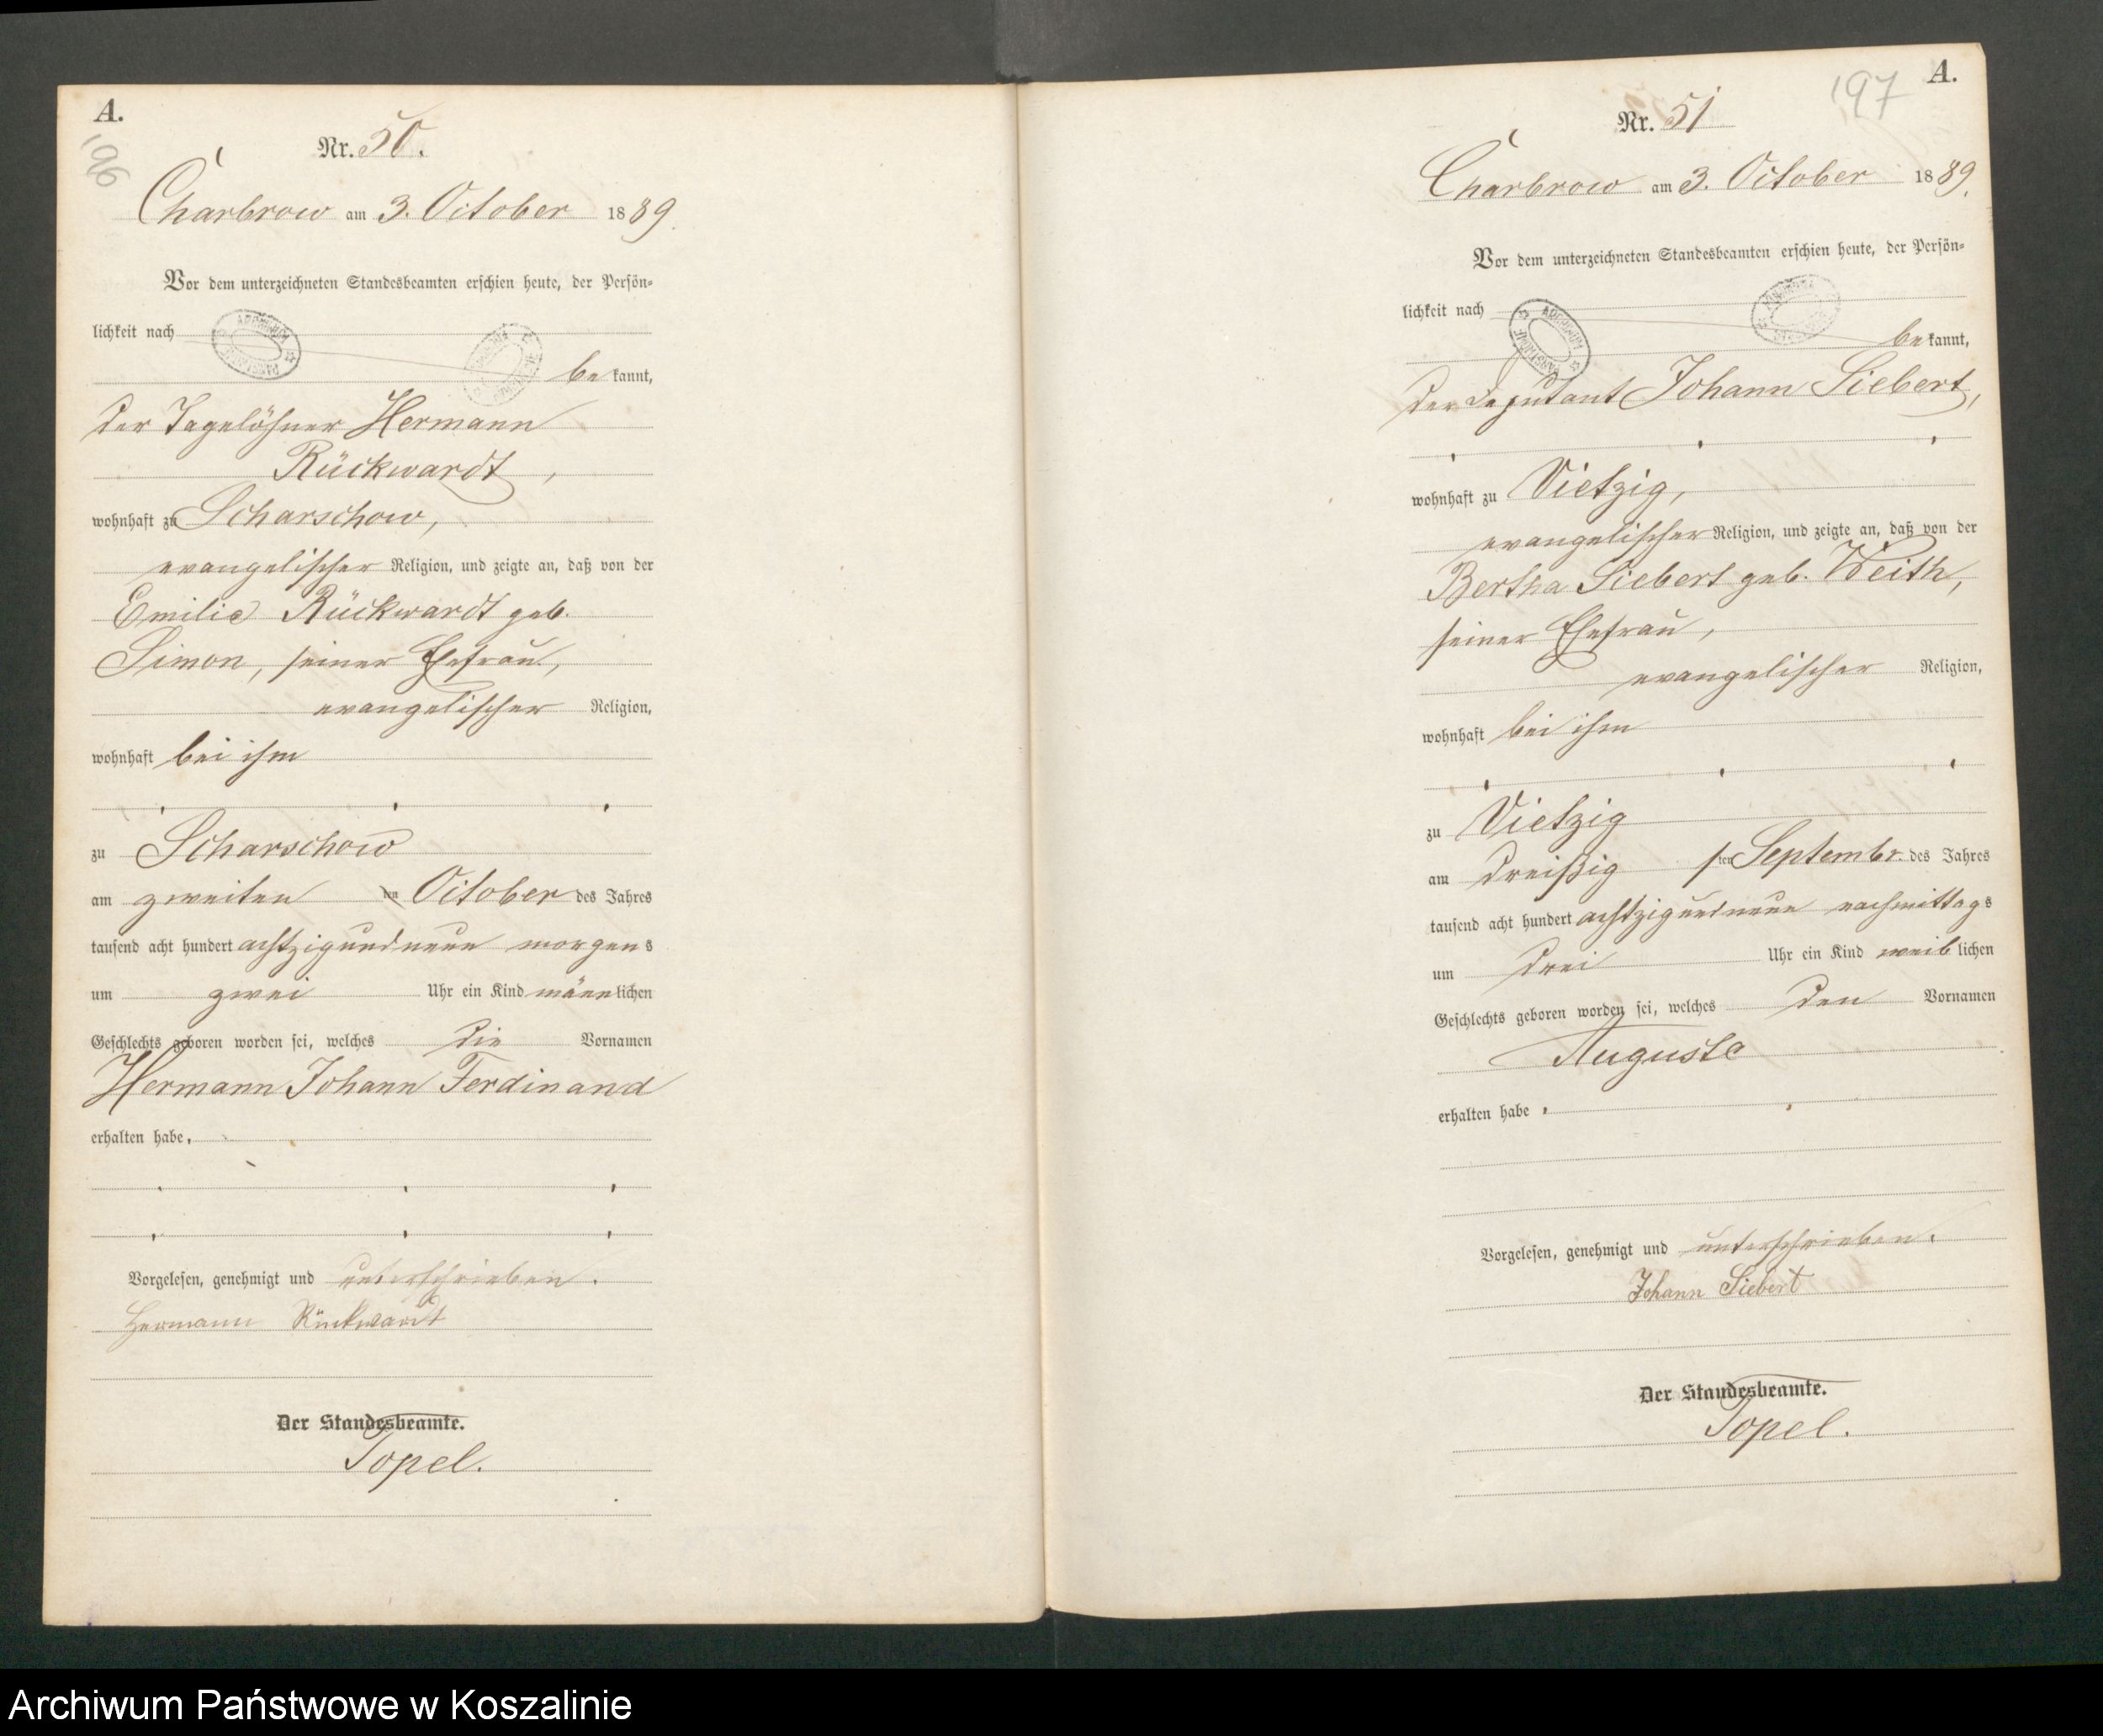 A.
196
Nr. 50.
Charbrow am 3. October 1889.
Vor dem unterzeichneten Standesbeamten erschien heute, der Persön-
lichkeit nach
bekannt,
der Tagelöhner Hermann
Rückwardt,
wohnhaft zu Scharschow,
evangelischer Religion, und zeigte an, daß von der
Emilie Rückwardt geb.
Simon, seiner Ehefrau,
evangelischer Religion,
wohnhaft bei ihm
zu Scharschow
am zweiten ten October des Jahres
tausend acht hundert achtzigundneun morgens
um zwei Uhr ein Kind männlichen
Geschlechts geboren worden sei, welches die Vornamen
Hermann Johann Ferdinand
erhalten habe.
Vorgelesen, genehmigt und unterschrieben.
Hermann Rückwardt
Der Standesbeamte.
Topel.
A.
197
Nr. 51
Charbrow am 3. October 1889.
Vor dem unterzeichneten Standesbeamten erschien heute, der Persön-
lichkeit nach
bekannt,
der Deputant Johann Siebert,
wohnhaft zu Vietzig,
evangelischer Religion, und zeigte an, daß von der
Bertha Siebert geb. Weith,
seiner Ehefrau,
evangelischer Religion,
wohnhaft bei ihm
zu Vietzig
am dreißigsten Septembr. des Jahres
tausend acht hundert achtzigundneun nachmittags
um drei Uhr ein Kind weiblichen
Geschlechts geboren worden sei, welches den Vornamen
Auguste
erhalten habe.
Vorgelesen, genehmigt und unterschrieben.
Johann Siebert
Der Standesbeamte.
Topel.
Archiwum Państwowe w Koszalinie